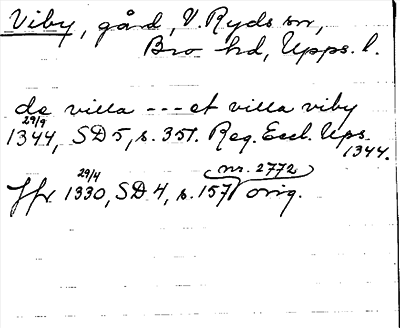 Viby, gård, V. Ryds sn,
Bro hd, Upps. l.
de villa --- et villa viby
29/9
1344, SD 5, s. 351. Reg. Eccl. Ups.
1344.
29/4 nr. 2772
Jfr 1330, SD 4, s. 157 orig.